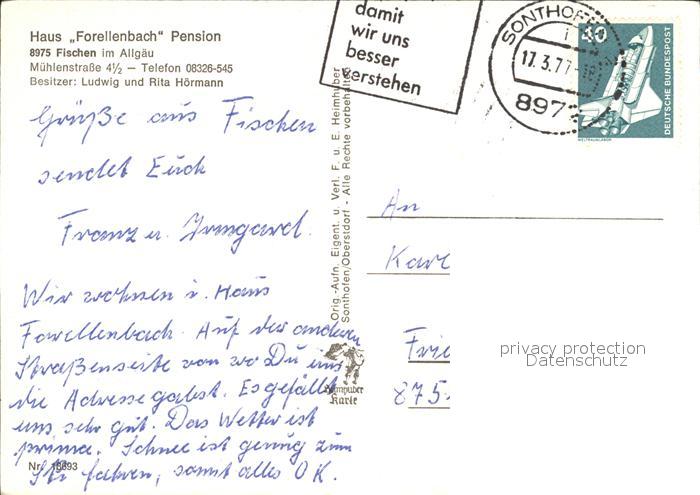 Haus „Forellenbach“ Pension
8975 Fischen im Allgäu
Mühlenstraße 4½ — Telefon 08326-545
Besitzer: Ludwig und Rita Hörmann
Grüße aus Fischen
sendet Euch
Franz u. Irmgard.
Wir wohnen i. Haus
Forellenbach. Auf der anderen
Straßenseite von wo Du uns
die Adresse gabst. Es gefällt
uns sehr gut. Das Wetter ist
prima. Schnee ist genug zum
Ski fahren, sonst alles OK.
Nr. 16693
Orig.-Aufn. Eigent. u. Verl. F. u. E. Heimhuber
Sonthofen/Oberstdorf - Alle Rechte vorbehalten
Heimhuber
Karte
damit
wir uns
besser
verstehen
SONTHOFEN
17.3.77
897
40
DEUTSCHE BUNDESPOST
WELTRAUMLABOR
An
Karl
Frie
875
privacy protection
Datenschutz